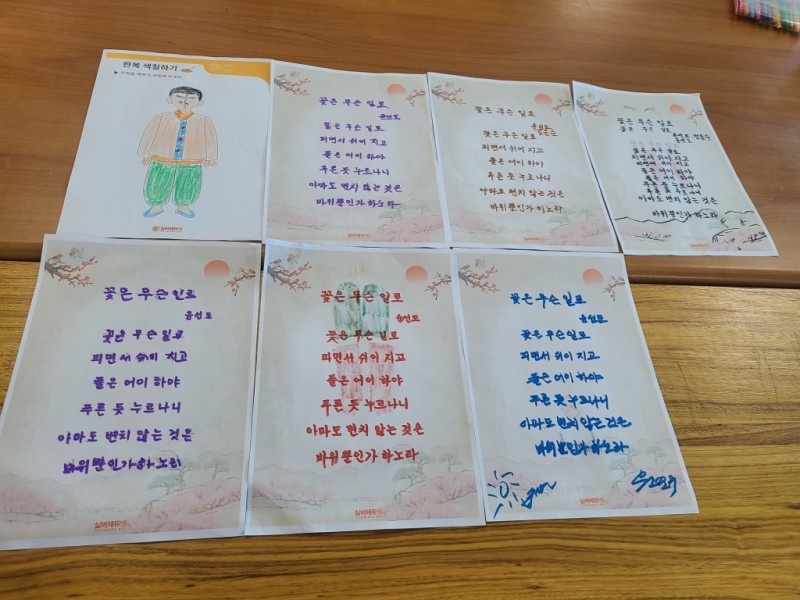 한복 색칠하기
꽃은 무슨 일로
윤선도
꽃은 무슨 일로
피면서 쉬이 지고
풀은 어이 하야
푸른 듯 누르나니
아마도 변치 않는 것은
바위뿐인가 하노라
실버에듀넷
꽃은 무슨 일로
윤선도
꽃은 무슨 일로
피면서 쉬이 지고
풀은 어이 하야
푸른 듯 누르나니
아마도 변치 않는 것은
바위뿐인가 하노라
꽃은 무슨 일로
꽃은 무슨 일로
피면서 쉬이 지고
풀은 어이 하야
푸른 듯 누르나니
아마도 변치 않는 것은
바위뿐인가 하노라
꽃은 무슨 일로
윤선도
꽃은 무슨 일로
피면서 쉬이 지고
풀은 어이 하야
푸른 듯 누르나니
아마도 변치 않는 것은
바위뿐인가 하노라
실버에듀넷
꽃은 무슨 일로
윤선도
꽃은 무슨 일로
피면서 쉬이 지고
풀은 어이 하야
푸른 듯 누르나니
아마도 변치 않는 것은
바위뿐인가 하노라
실버에듀넷
꽃은 무슨 일로
윤선도
꽃은 무슨 일로
피면서 쉬이 지고
풀은 어이 하야
푸른 듯 누르나니
아마도 변치 않는 것은
바위뿐인가 하노라
실버에듀넷